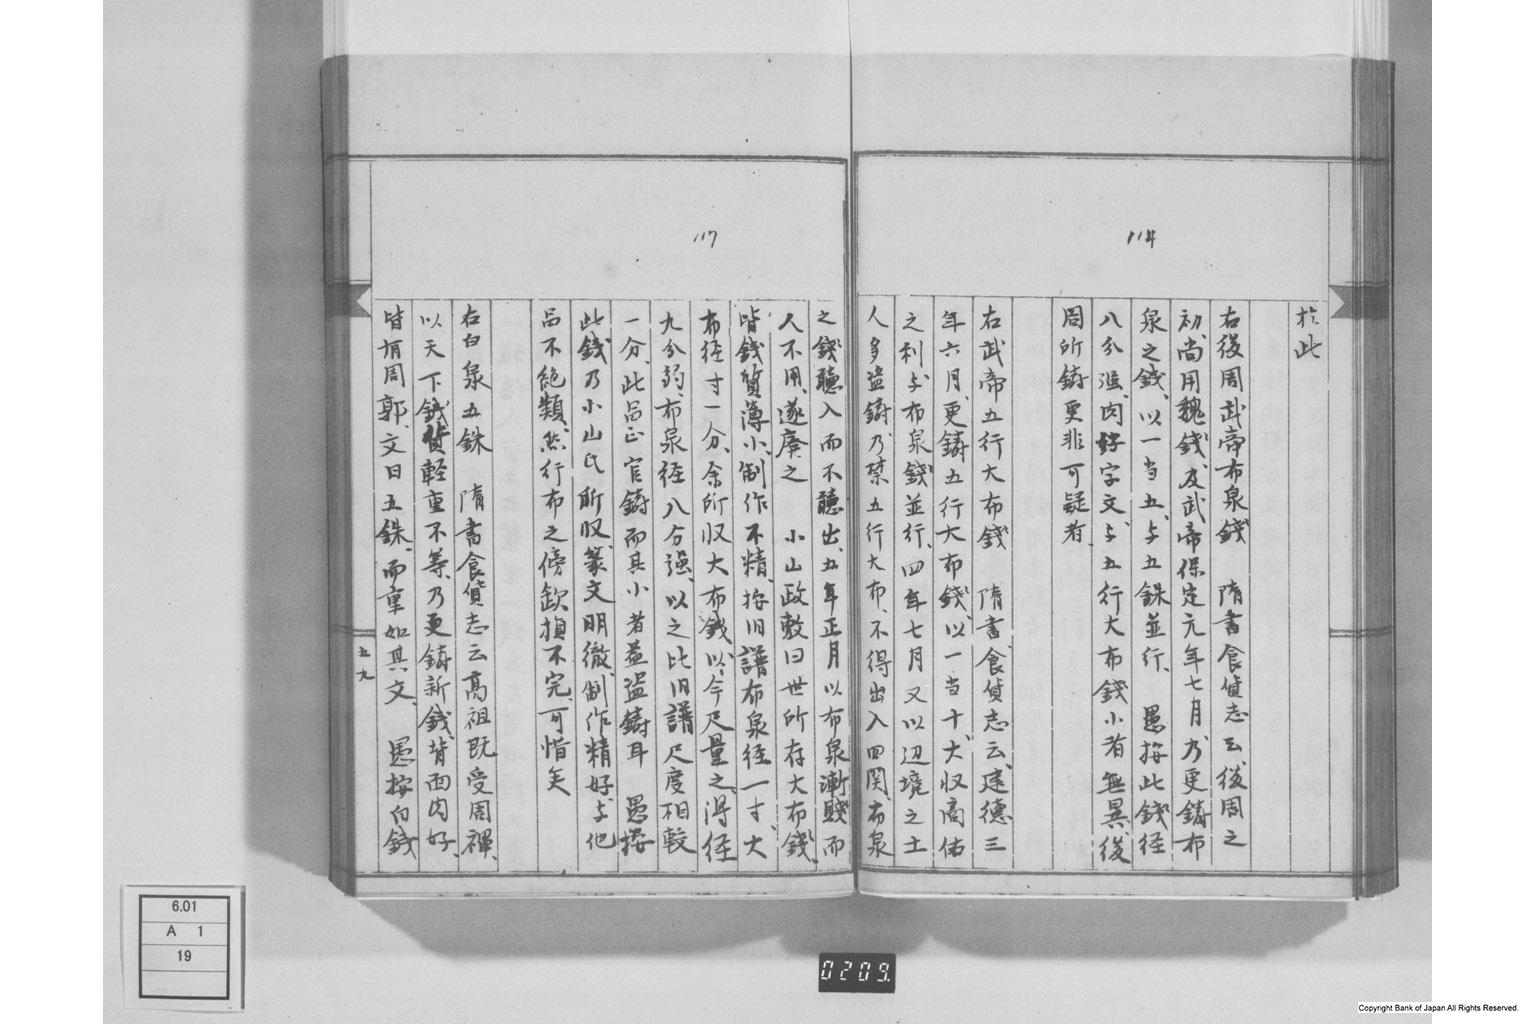 114
於此
右後周武帝布泉錢　隋書食貨志云、後周之
初、尚用魏錢、及武帝保定元年七月、乃更鑄布
泉之錢、以一当五、与五銖並行、愚按此錢径
八分強、肉好字文、与五行大布錢小者無異、後
周所鋳更非可疑者
右武帝五行大布錢　隋書食貨志云、建德三
年六月、更鑄五行大布錢、以一当十、大収商估
之利、与布泉錢並行、四年七月又以辺境之上
人多盗鋳、乃禁五行大布、不得出入四関、布泉
117
之錢聽入而不聽出、五年正月以布泉漸賤而
人不用、遂廃之　小山政敷曰世所存大布錢、
皆錢質薄小、制作不精、按旧譜布泉径一寸、大
布径寸一分、余所収大布錢、以今尺量之、得径
九分弱、布泉径八分強、以之比旧譜尺度相較
一分、此品正官鋳而其小者蓋盗鋳耳　愚按
此錢乃小山氏所収、篆文明徹、制作精好、与他
品不絶類、然行布之傍欽損不完、可惜矣
右白泉五銖　隋書食貨志云高祖既受周禅、
以天下錢貨軽重不等、乃更鋳新錢、背面肉好、
皆有周郭、文曰五銖、而重如其文、　愚按白錢
五九
6.01
A 1
19
0209.
Copyright Bank of Japan All Rights Reserved.